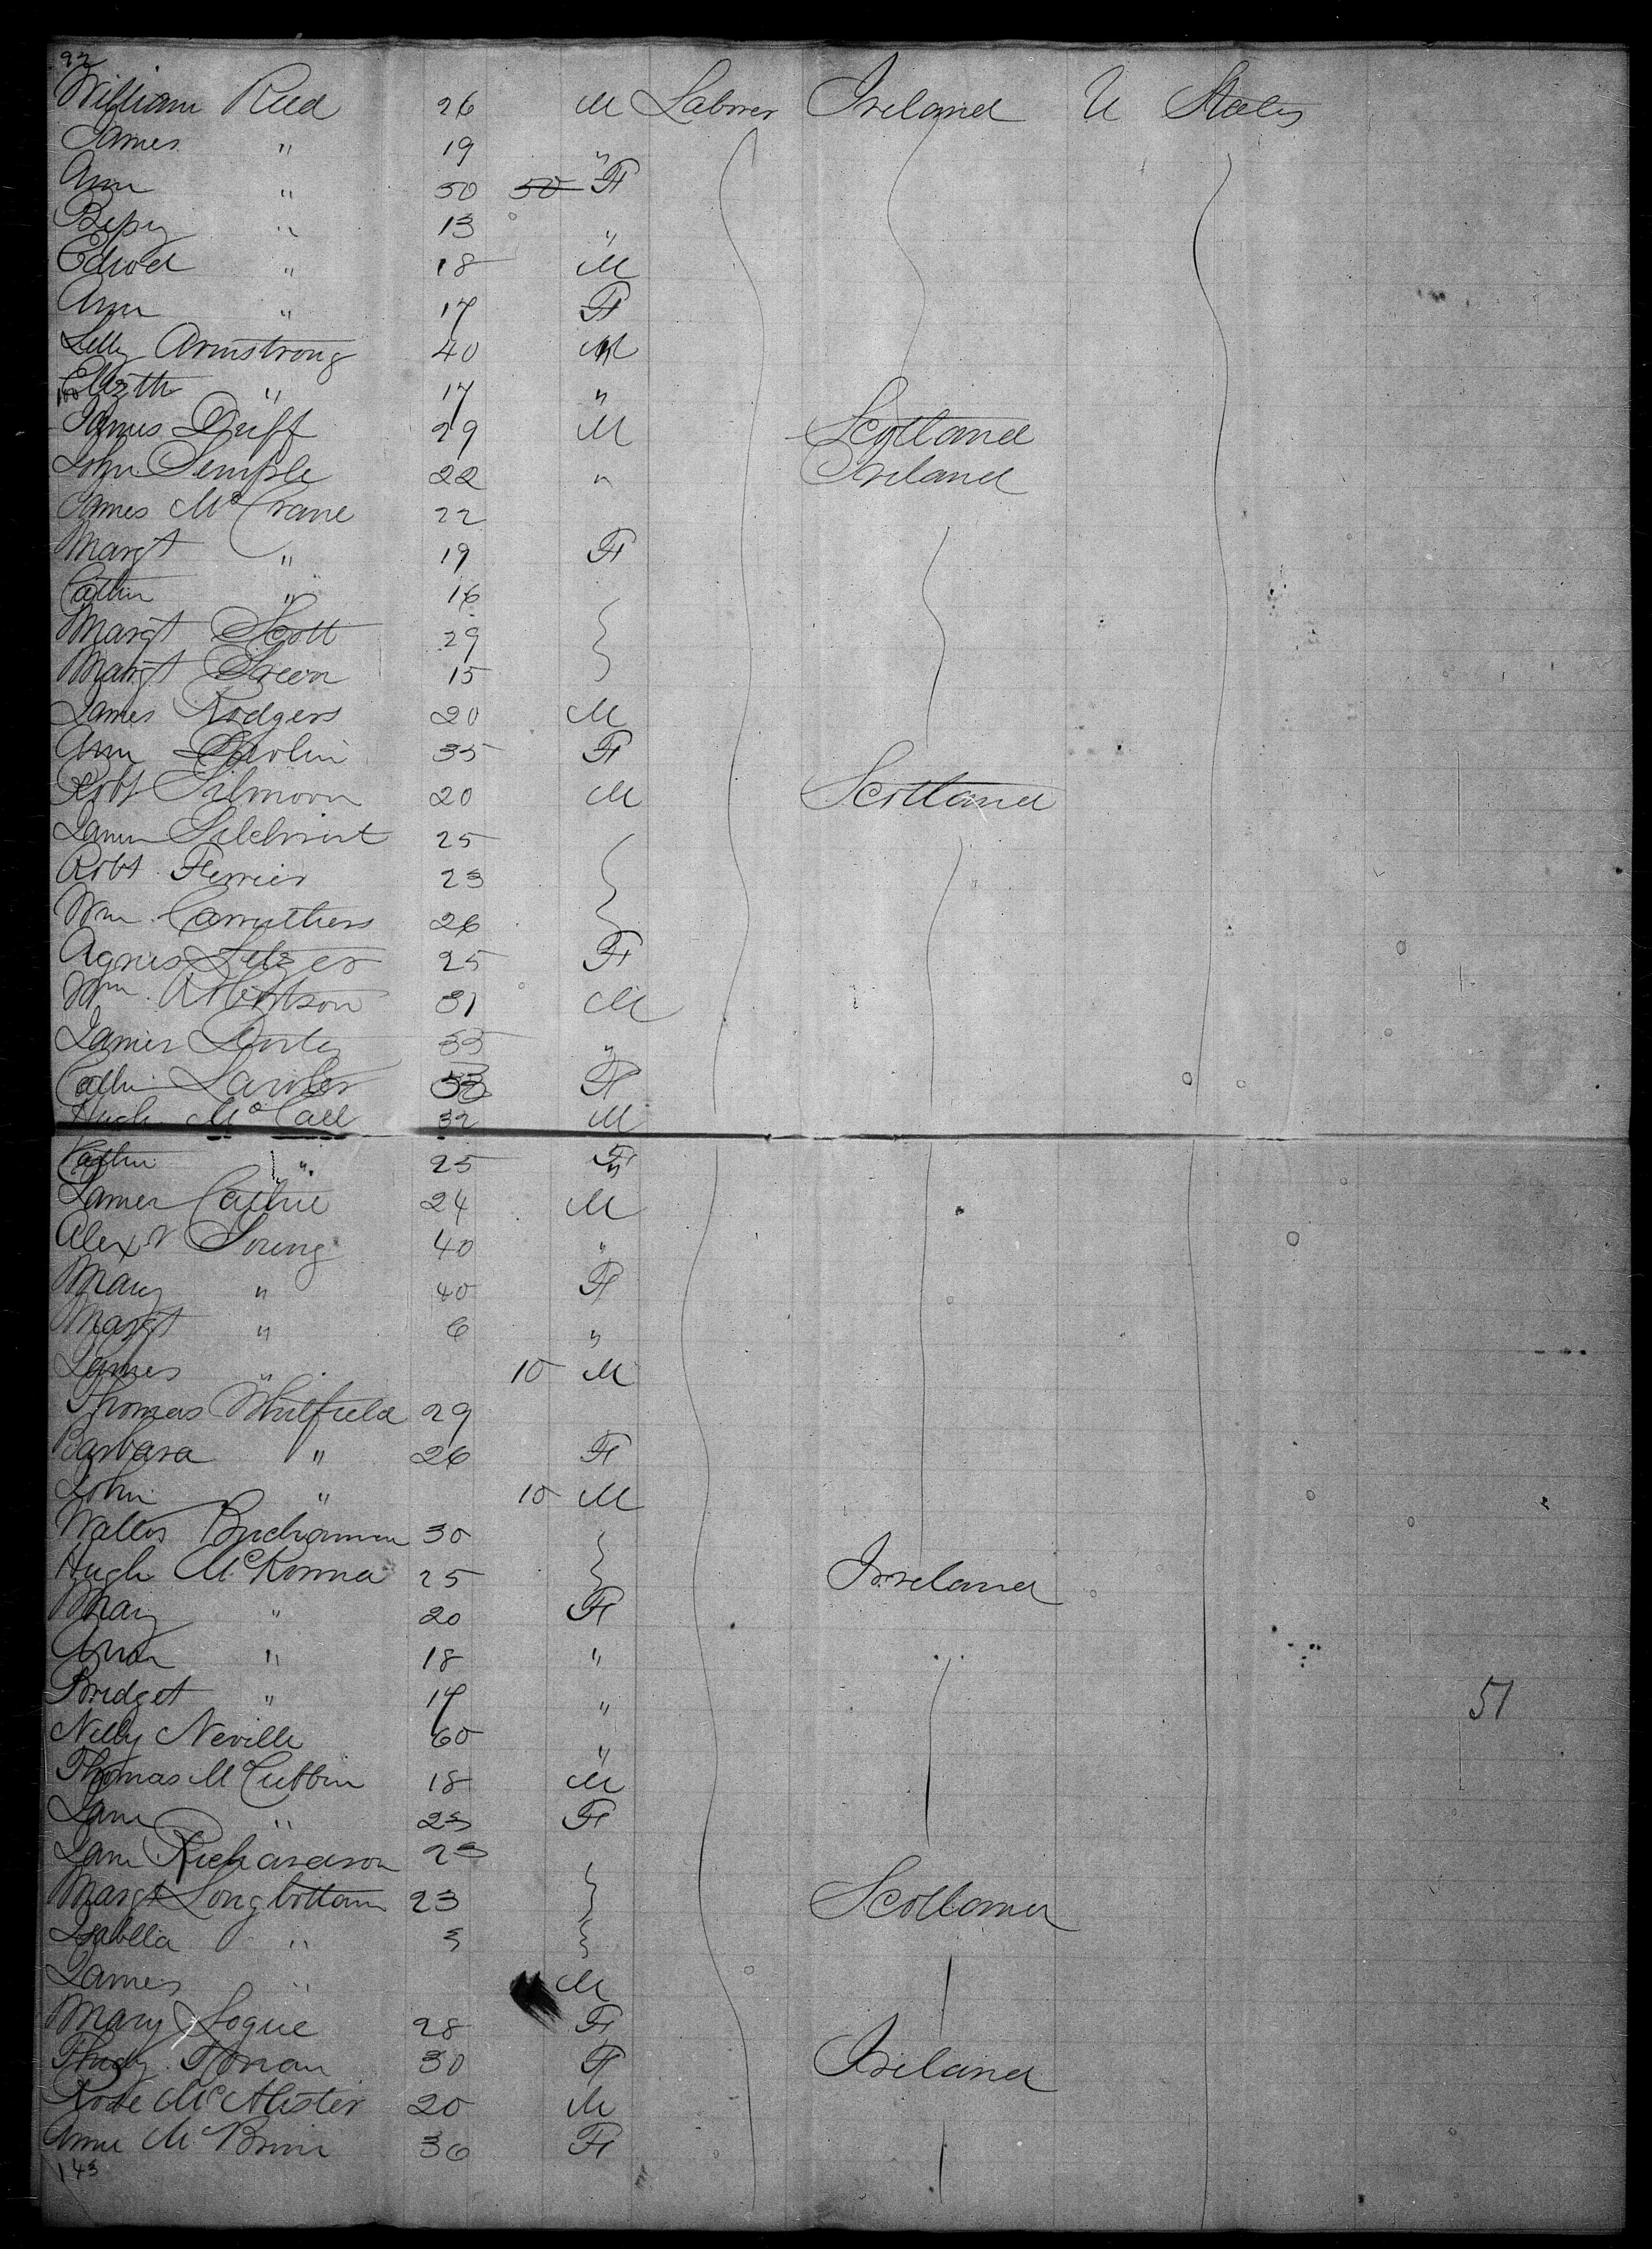 92
William Reed 26 M Labrer Ireland U States
James " 19 "
Ann " 50 50 F
Bessy " 13 "
Edwd " 18 M
Ann " 17 F
Lilly Armstrong 40 M
100 Elizth " 17 "
James Duff 29 M Scotland
John Semple 22 " Ireland
James McCrane 22
Margt " 19 F
Cathn " 16
Margt Scott 29
Margt 15
James Rodgers 20 M
Ann Devlin 35 F
Robt Gilmoor 20 M Scotland
James Gilchrist 25
Robt Ferrier 23
Wm Carruthers 26
Agnes 25 F
Wm Robertson 31 M
James 33 "
Cathn Lawler F
Hugh McCall 32 M
Cathn " 25 F
James Cathie 24 M
Alexr Young 40 "
Mary " 40 F
Margt " 6 "
James " 10 M
Thomas Whitfield 29
Barbara " 26 F
John " 10 M
Walter Buchanan 30
Hugh McKenna 25 Ireland
Mary " 20 F
Ann " 18 "
Bridget " 17 " 51
Nelly Neville 60 "
Thomas McCubbin 18 M
Jane " 23 F
Jane Richardson 23
Margt Longbottom 23 Scotland
Isabella " 3
James " M
Mary Logue 28 F
30 F Ireland
Rose McAlister 20 M
Anne McBrine 30 F
143